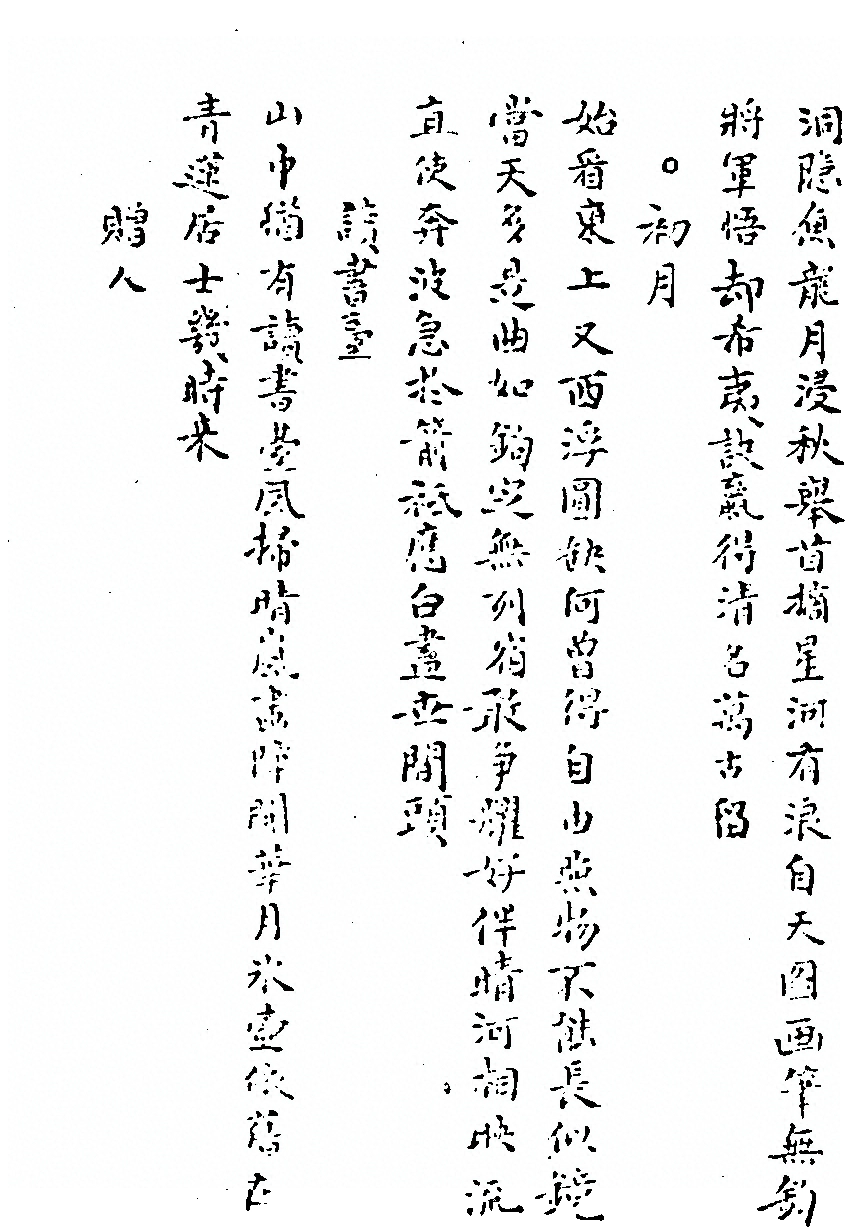 洞隐魚龍月浸秋舉首摘星河有浪自天圖画筆無鈎
將軍悟却希夷訣贏得清名萬古留
○初月
始看東上又西浮圓缺何曾得自由照物不能長似鏡
當天多是曲如鈎定無列宿敢爭耀好伴晴河相映流
直使奔波急於箭祗應白盡世間頭
讀書臺
山中猶有讀書臺風掃晴嵐畫障開華月氷壺依舊在
青蓮居士幾時来
贈人